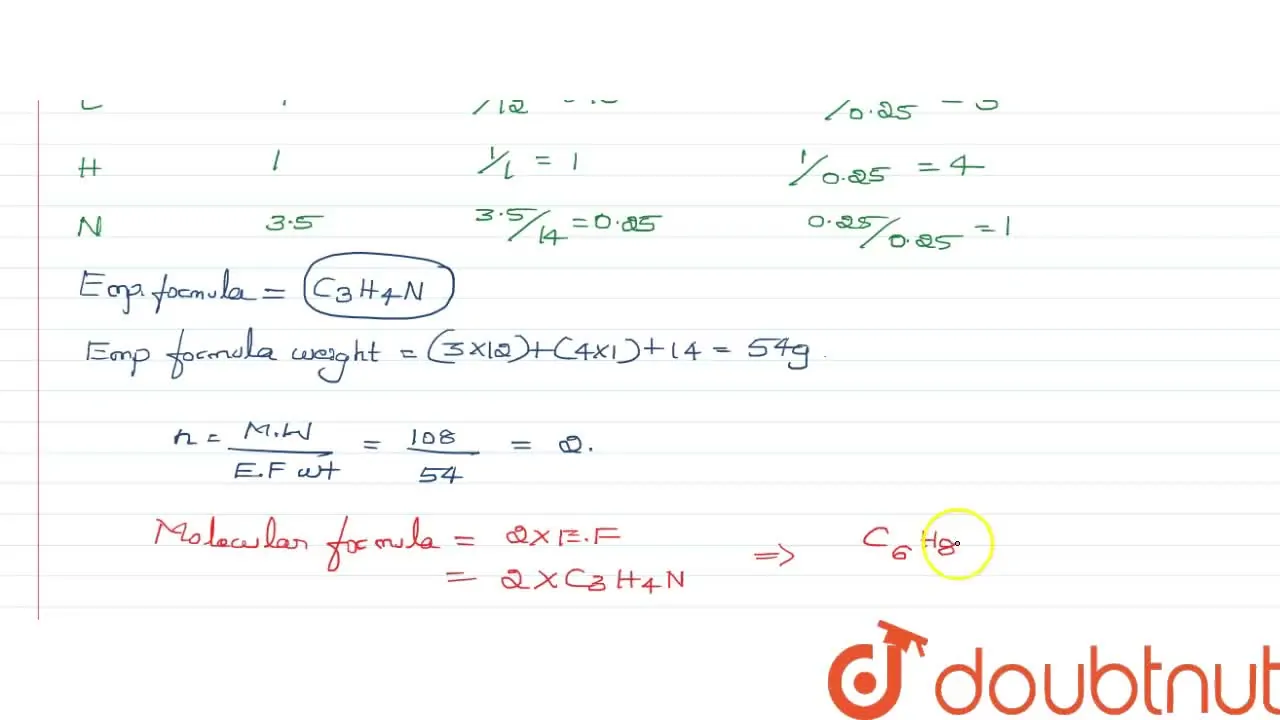 H 1 1/1 = 1 1/0.25 = 4
N 3.5 3.5/14 = 0.25 0.25/0.25 = 1
Emp formula = C3H4N
Emp formula weight = (3×12)+(4×1)+14 = 54g.
n = M.W/E.F wt = 108/54 = 2.
Molecular formula = 2×E.F ⇒ C6H8
= 2×C3H4N
doubtnut